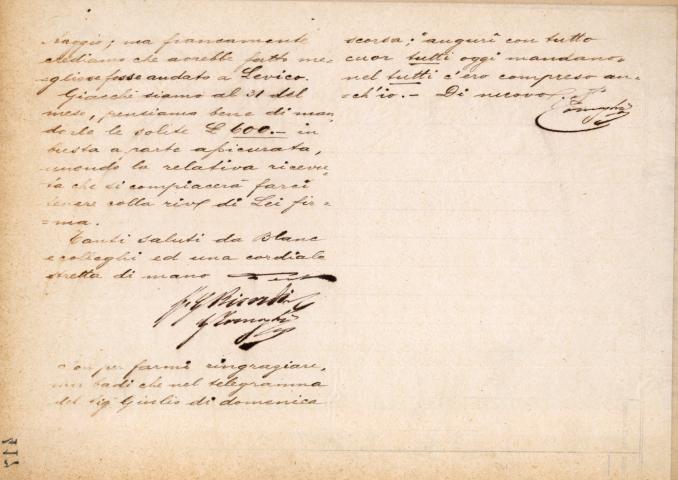 viaggio; ma francamente
crediamo che avrebbe fatto me=
=glio se fosse andato a Levico.
Giacchè siamo al 31 del
mese, pensiamo bene di man
darle le solite £ 600.— in
busta a parte assicurata,
unendo la relativa ricevu
ta che si compiacerà farci
tenere colla riv/ di Lei fir=
=ma.
Tanti saluti da Blanc
e colleghi ed una cordiale
stretta di mano
G Ricordi
G Tornaghi
Non per farmi ringraziare,
ma badi che nel telegramma
del sig Giulio di domenica
scorsa: "auguri con tutto
cuor tutti oggi mandano,
nel tutti c'ero compreso an=
=ch'io.— Di nuovo
Tornaghi
117